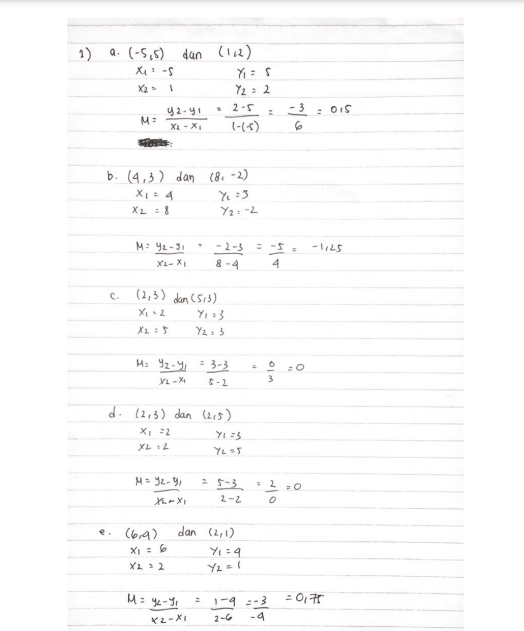 1) a. (-5,5) dan (1,2)
x1 = -5 y1 = 5
x2 = 1 y2 = 2
M = y2-y1 / x2-x1 = 2-5 / 1-(-5) = -3 / 6 = 0,5
b. (4,3) dan (8,-2)
x1 = 4 y1 = 3
x2 = 8 y2 = -2
M = y2-y1 / x2-x1 = -2-3 / 8-4 = -5 / 4 = -1,25
c. (2,3) dan (5,3)
x1 = 2 y1 = 3
x2 = 5 y2 = 3
M = y2-y1 / x2-x1 = 3-3 / 5-2 = 0 / 3 = 0
d. (2,3) dan (2,5)
x1 = 2 y1 = 3
x2 = 2 y2 = 5
M = y2-y1 / x2-x1 = 5-3 / 2-2 = 2 / 0 = 0
e. (6,4) dan (2,1)
x1 = 6 y1 = 4
x2 = 2 y2 = 1
M = y2-y1 / x2-x1 = 1-4 / 2-6 = -3 / -4 = 0,75